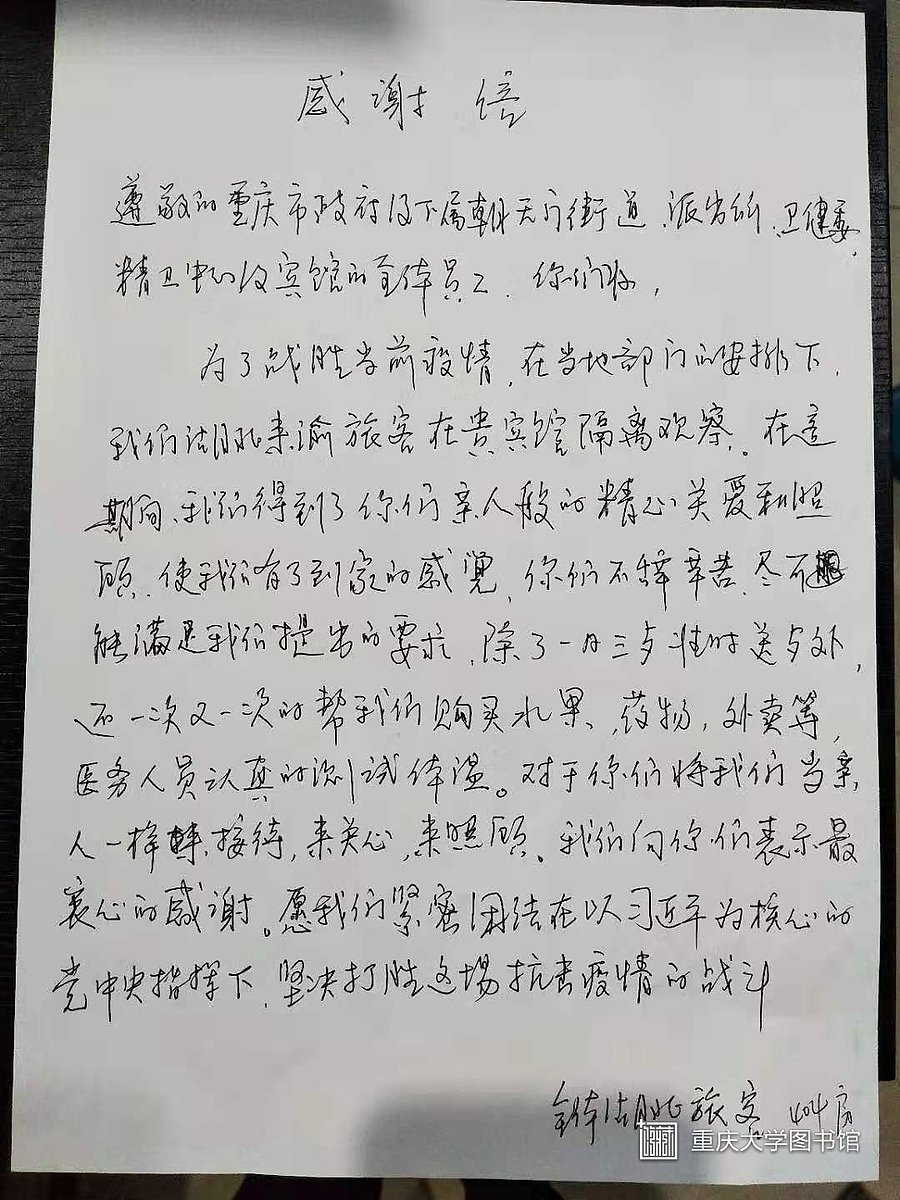 感谢信
遵敬的重庆市政府及下属朝天门街道、派出所、卫健委,
精卫中心及宾馆的全体员工、你们好,
为了战胜当前疫情,在当地部门的安排下,
我们湖北来渝旅客在贵宾馆隔离观察。在这
期间、我们得到了你们亲人般的精心关爱和照
顾、使我们有了到家的感觉,你们不辞辛苦、尽可
能满足我们提出的要求,除了一日三歺准时送歺外,
还一次又一次的帮我们购买水果、药物,外卖等,
医务人员认真的测试体温。对于你们将我们当亲
人一样接待,来关心,来照顾。我们向你们表示最
衷心的感谢。愿我们紧密团结在以习近平为核心的
党中央指挥下、坚决打胜这场抗击疫情的战斗
全体湖北旅客 404房
重庆大学图书馆